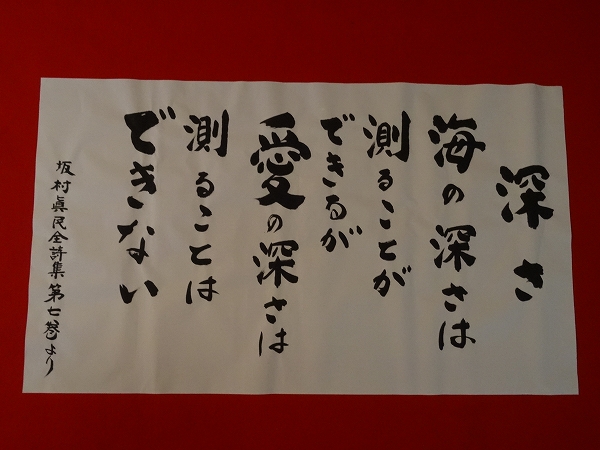 深さ
海の深さは
測ることが
できるが
愛の深さは
測ることは
できない
坂村眞民全詩集第七巻より